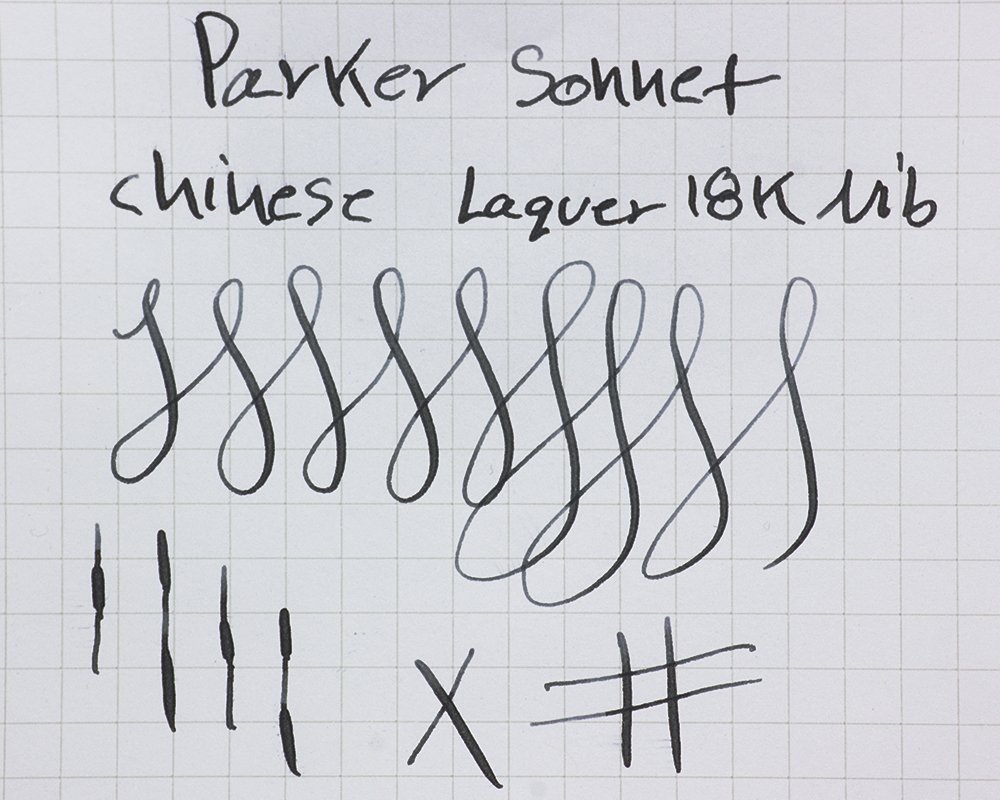 Parker Sonnet
Chinese Laquer 18K Nib